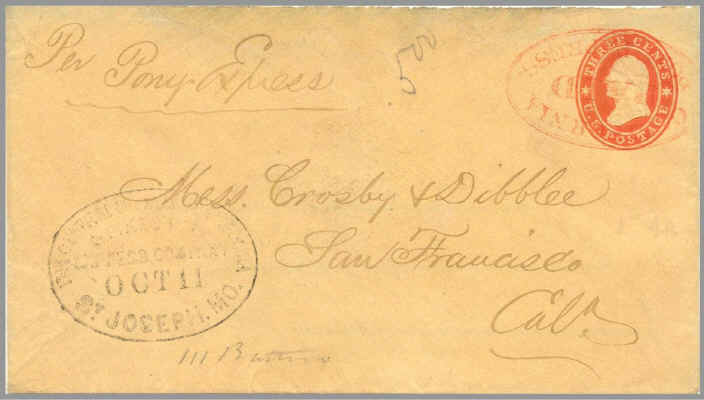 Per Pony Express
500
THREE CENTS
U.S. POSTAGE
Mess. Crosby & Dibblee
San Francisco
Cala
EXPRESS COMPANY
OCT 11
ST JOSEPH, MO.
111